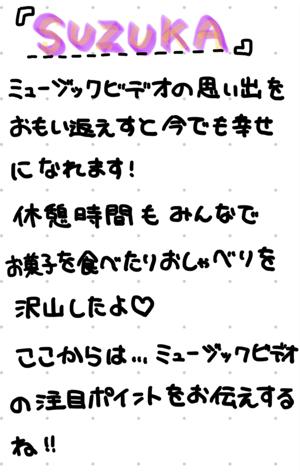 『SUZUKA』
ミュージックビデオの思い出を
おもい返えすと今でも幸せ
になれます!
休憩時間もみんなで
お菓子を食べたりおしゃべりを
沢山したよ♡
ここからは...ミュージックビデオ
の注目ポイントをお伝えする
ね!!